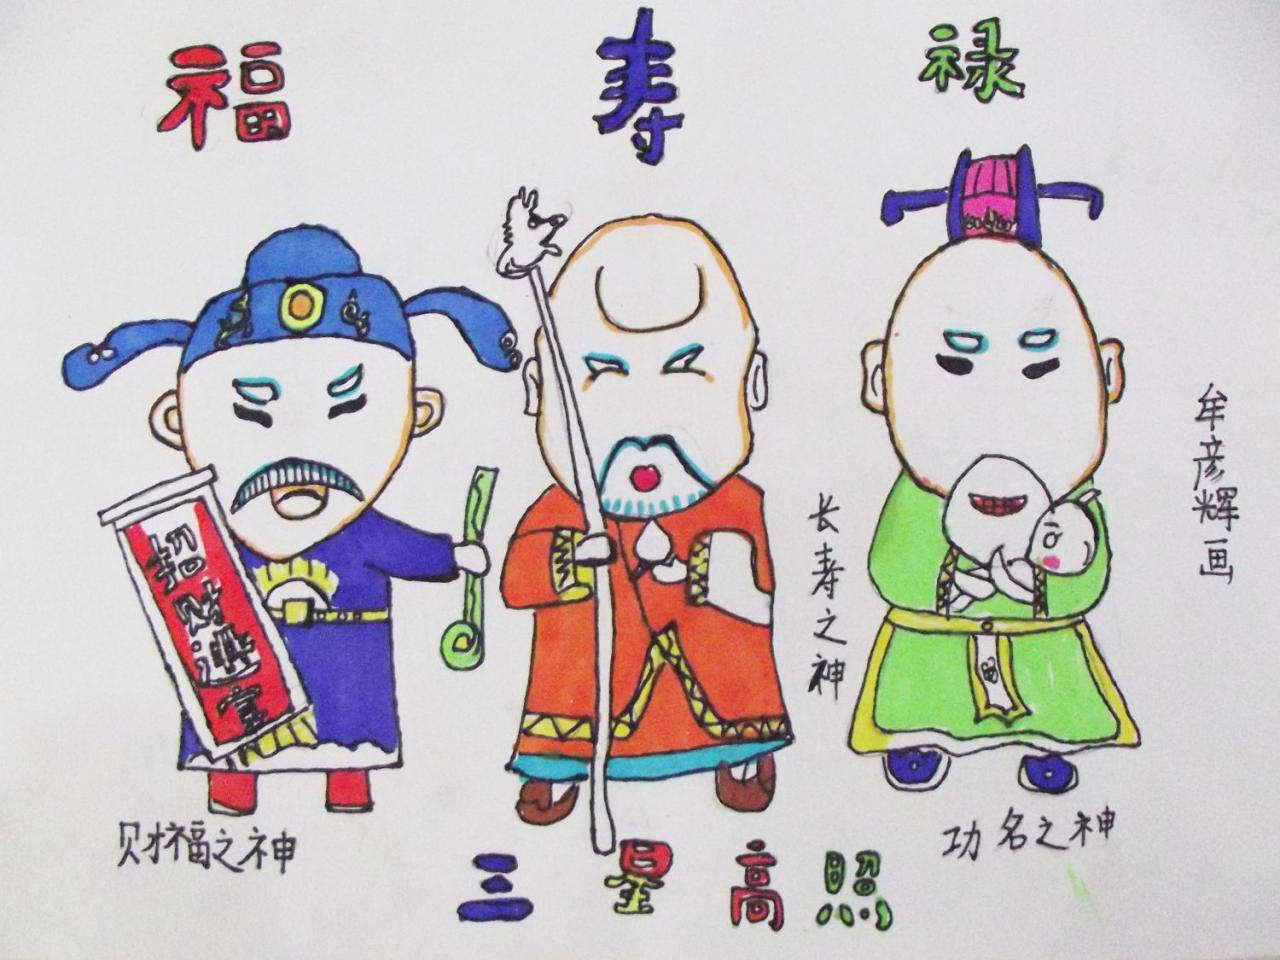 福 寿 禄
招财进宝
长寿之神
牟彦辉画
财福之神
功名之神
三星高照